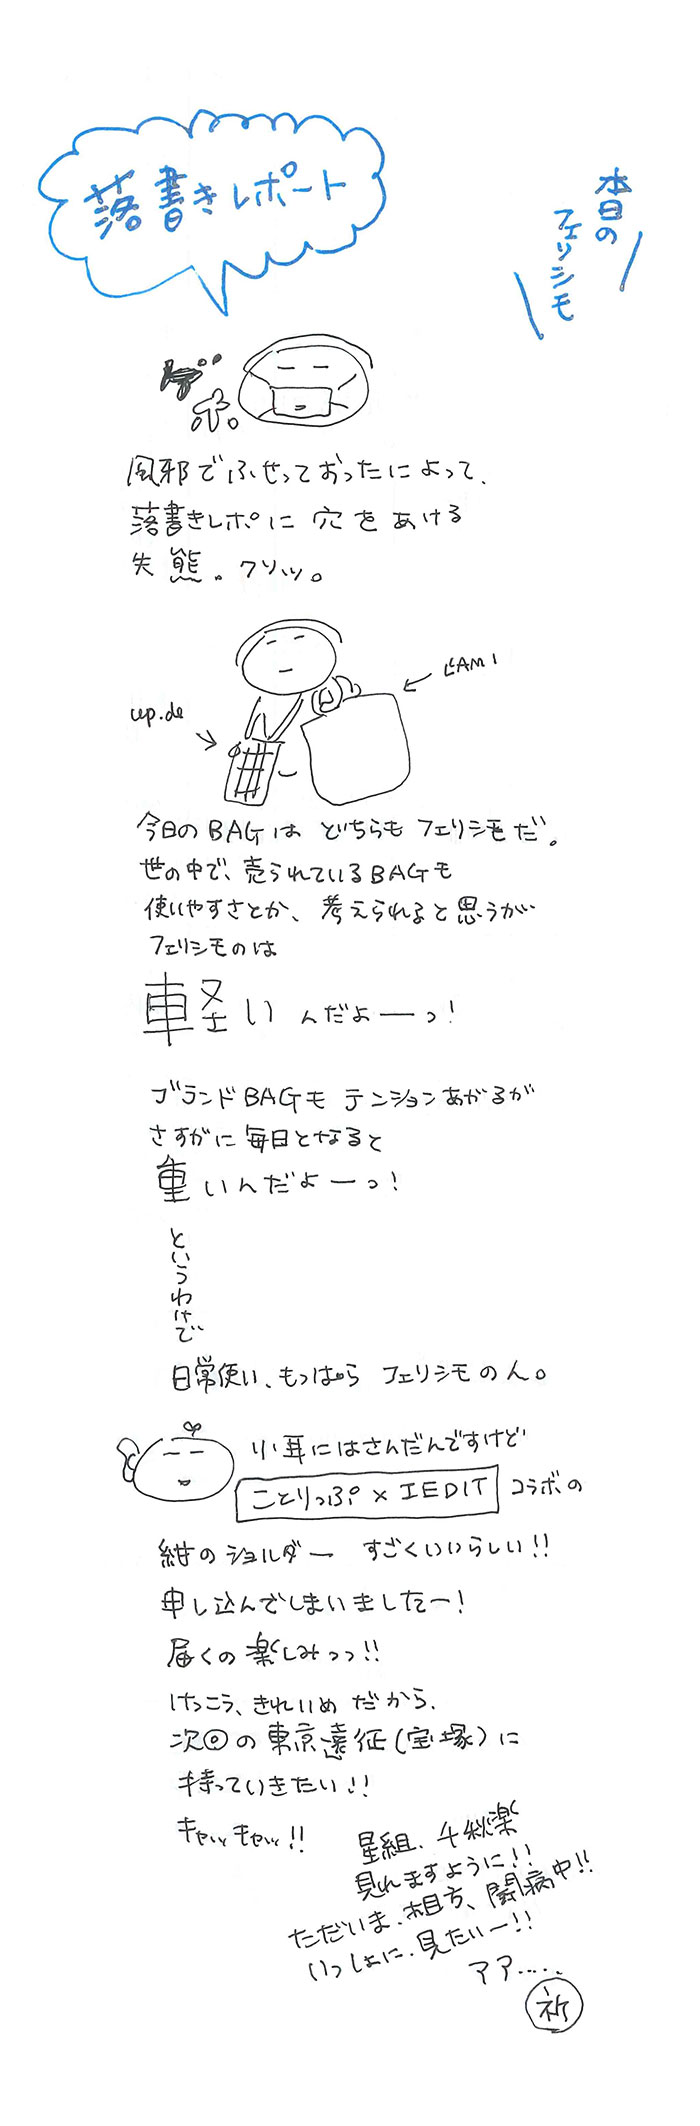 落書きレポート
本日の
フェリシモ
ゲ
ホ。
風邪でふせっておったによって、
落書きレポに穴をあける
失態。クソッ。
L'AMI
up.de
今日のBAGはどちらもフェリシモだ。
世の中で、売られているBAGも
使いやすさとか、考えられると思うが
フェリシモのは
軽いんだよーっ!
ブランドBAGもテンションあがるが
さすがに毎日となると
重いんだよーっ!
というわけで
日常使い、もっぱらフェリシモのん。
小耳にはさんだんですけど
ことりっぷ×IEDIT コラボの
紺のショルダー すごくいいらしい!!
申し込んでしまいましたー!
届くの楽しみっっ!!
けっこう、きれいめだから、
次回の東京遠征(宝塚)に
持っていきたい!!
キャッキャッ!!
星組、千秋楽
見れますように!!
ただいま、相方、闘病中!!
いっしょに、見たいー!!
アア……
祈